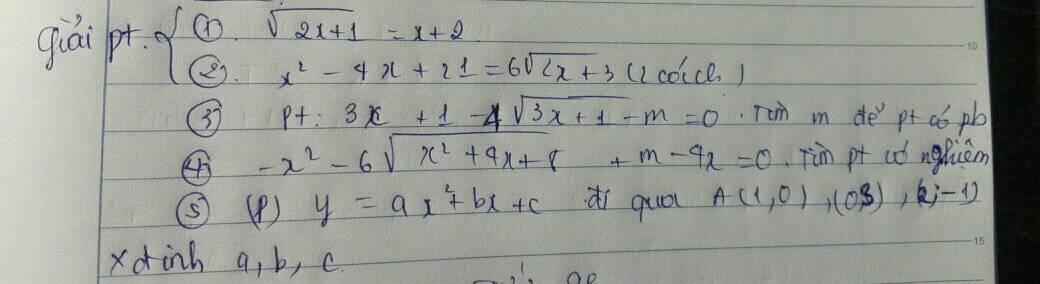 Giải pt. { ①. √2x+1 = x+2
②. x² - 4x + 21 = 6√2x+3 (2 cách)
③ pt: 3x + 1 - 4√3x+1 - m = 0. Tìm m để pt có pb
④ -x² - 6√x²+4x+8 + m - 4x = 0. Tìm pt có nghiệm
⑤ (P) y = ax² + bx + c đi qua A(1,0), (0,3), (2;-1)
xđịnh a, b, c.